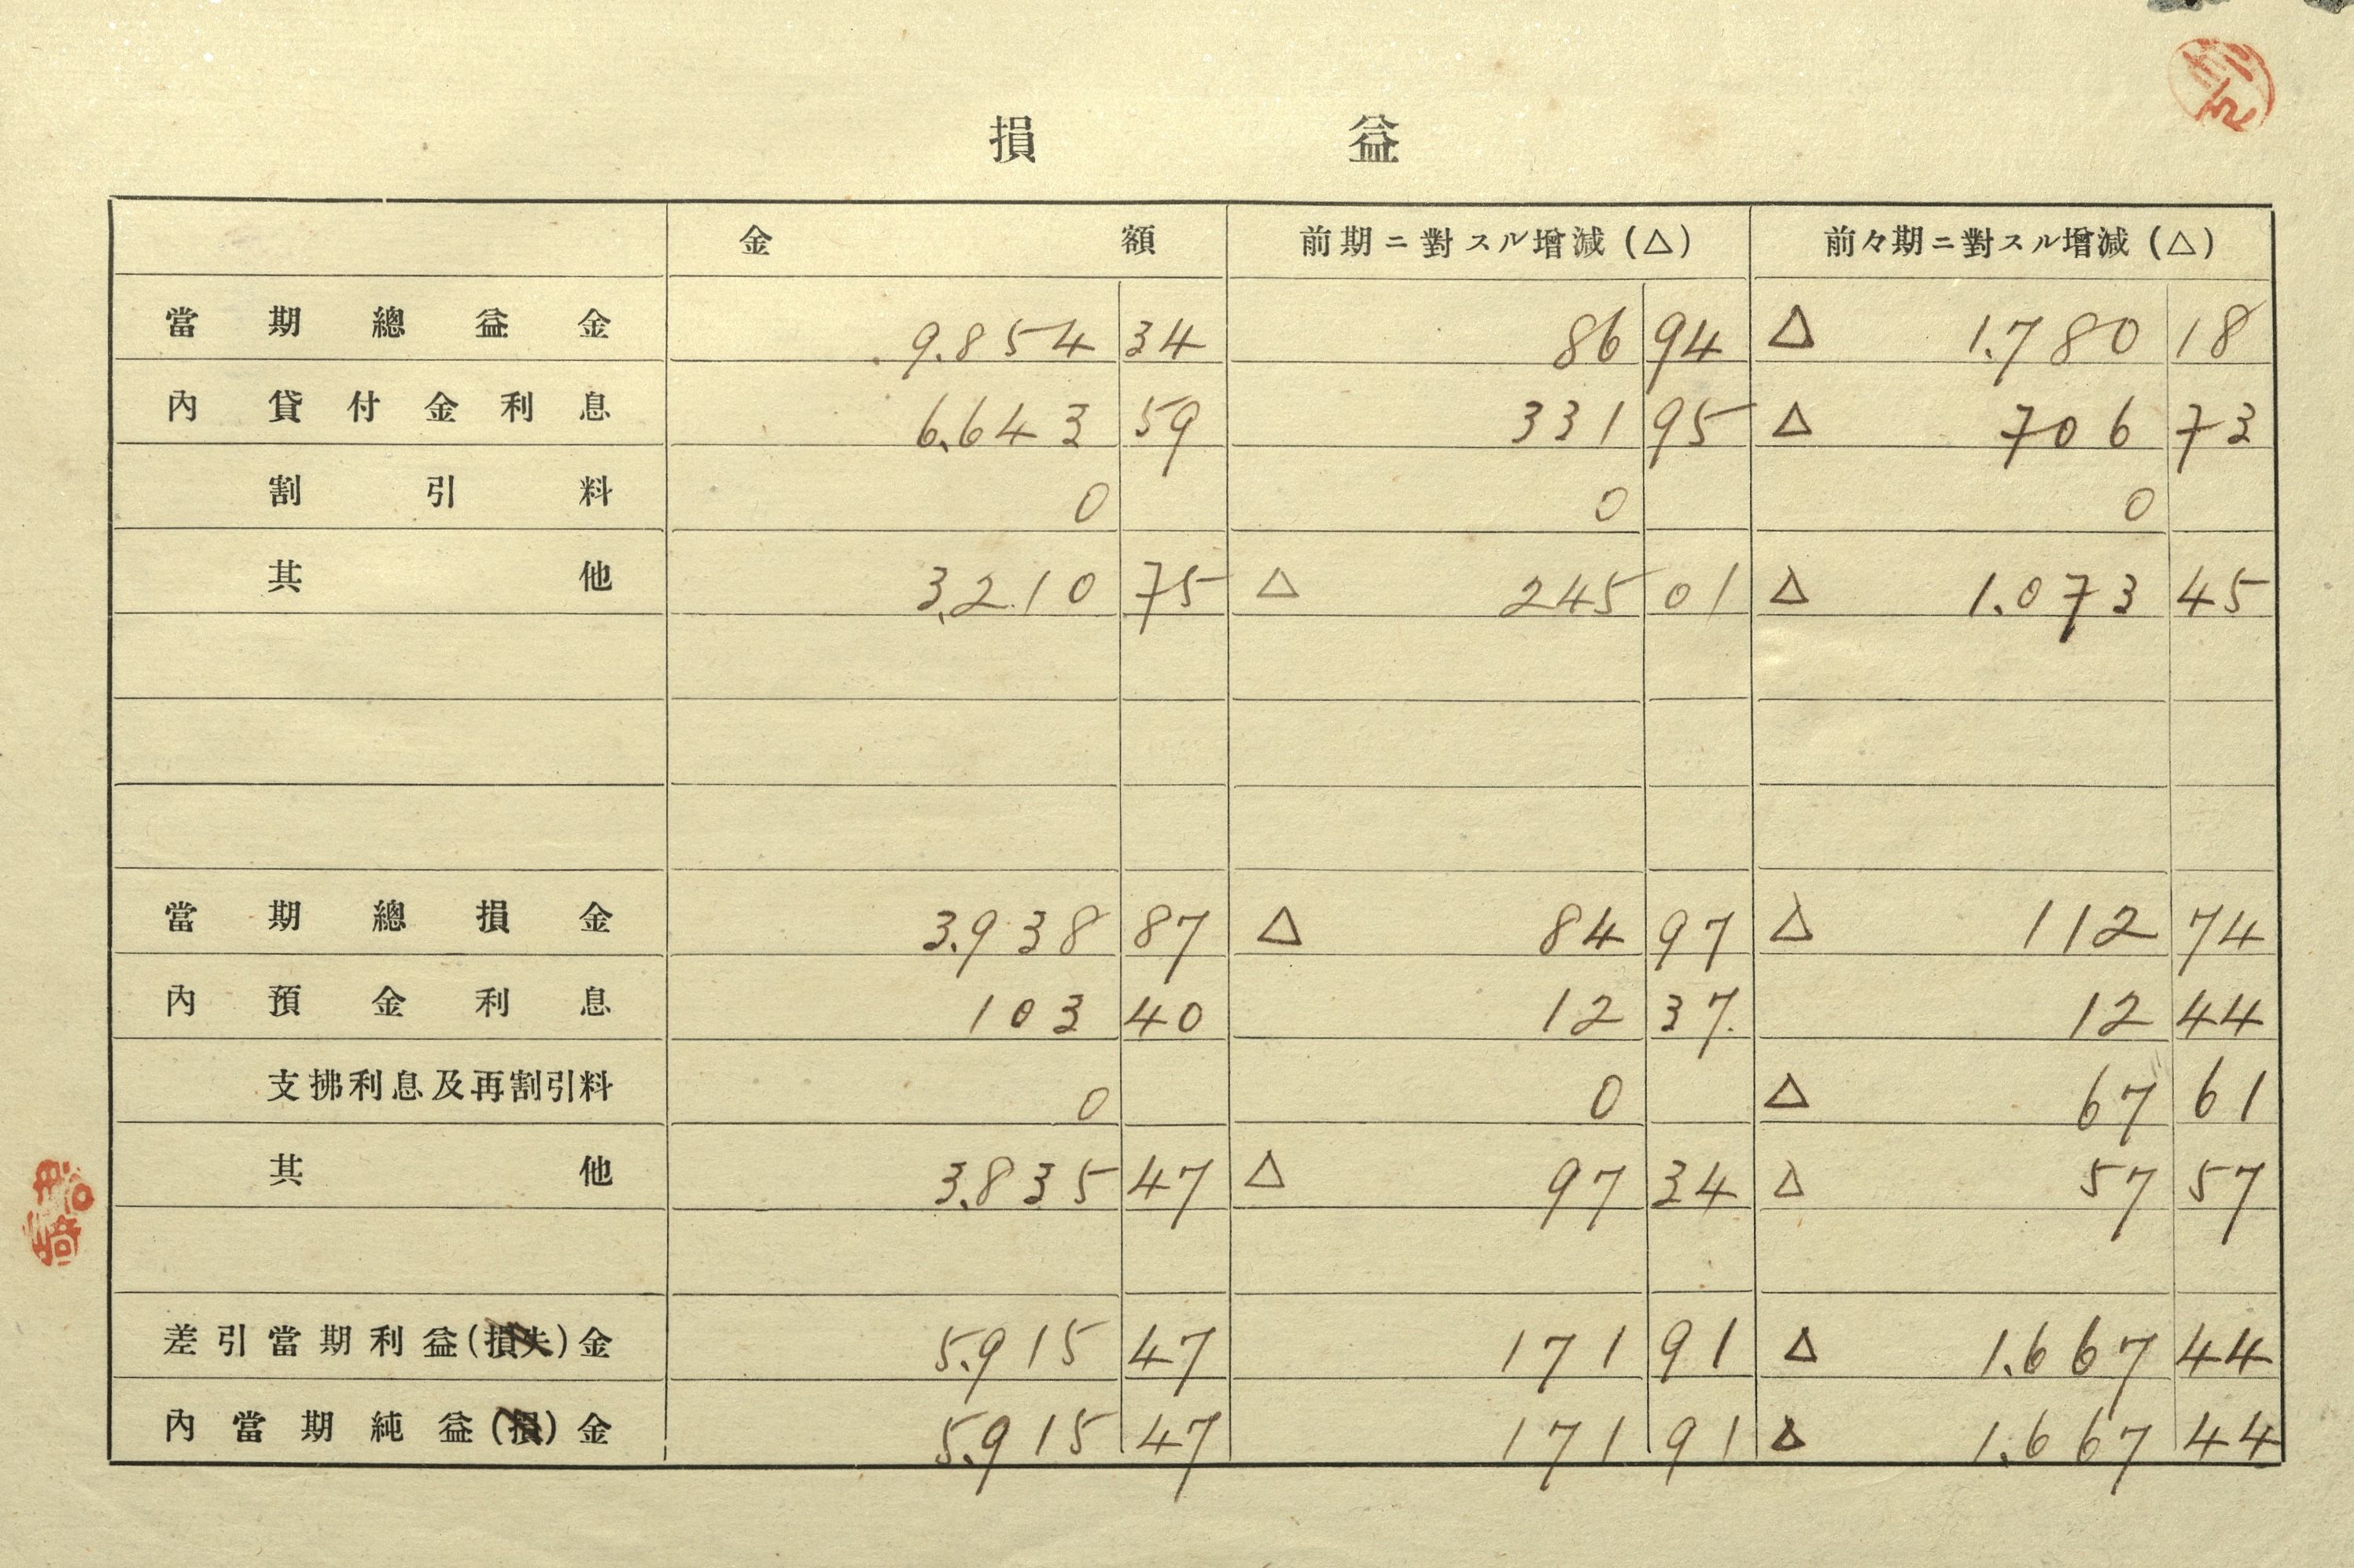 損益
金額 前期ニ對スル增減(△) 前々期ニ對スル增減(△)
當期總益金 9.854 34 86 94 △ 1.780 18
內 貸付金利息 6.643 59 331 95 △ 706 73
割引料 0 0 0
其他 3.210 75 △ 245 01 △ 1.073 45
當期總損金 3.938 87 △ 84 97 △ 112 74
內 預金利息 103 40 12 37 12 44
支拂利息及再割引料 0 0 △ 67 61
其他 3.835 47 △ 97 34 △ 57 57
差引當期利益(損失)金 5.915 47 171 91 △ 1.667 44
內當期純益(損)金 5.915 47 171 91 △ 1.667 44